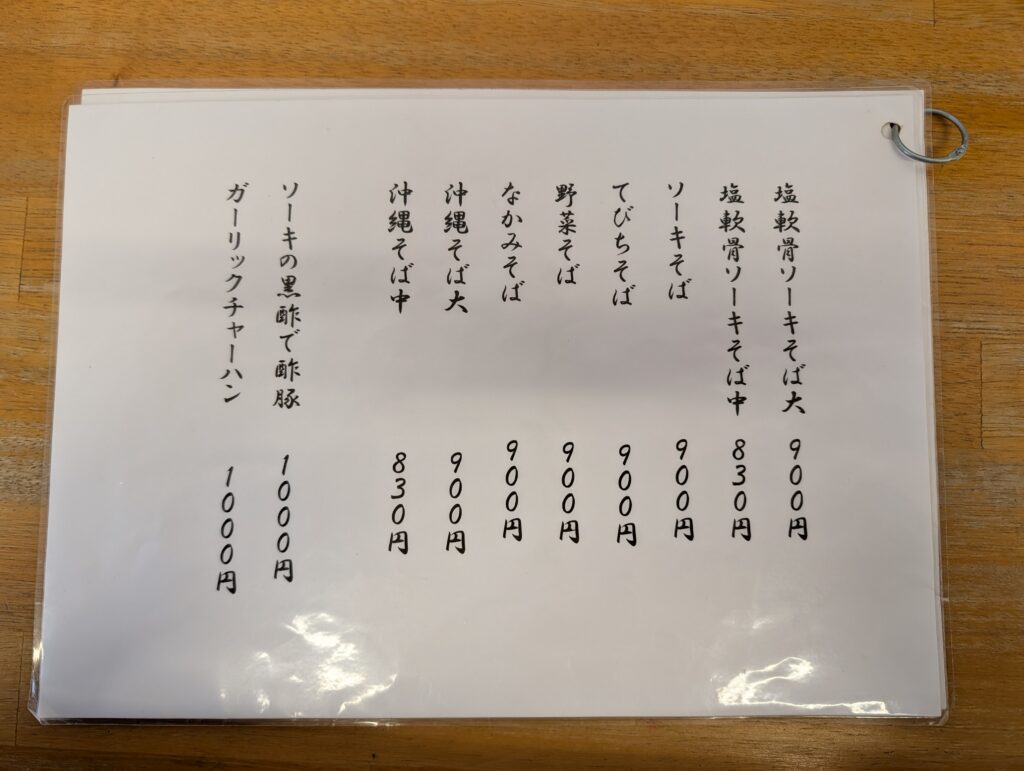 塩軟骨ソーキそば大 900円
塩軟骨ソーキそば中 830円
ソーキそば 900円
てびちそば 900円
野菜そば 900円
なかみそば 900円
沖縄そば大 900円
沖縄そば中 830円
ソーキの黒酢で酢豚 1000円
ガーリックチャーハン 1000円